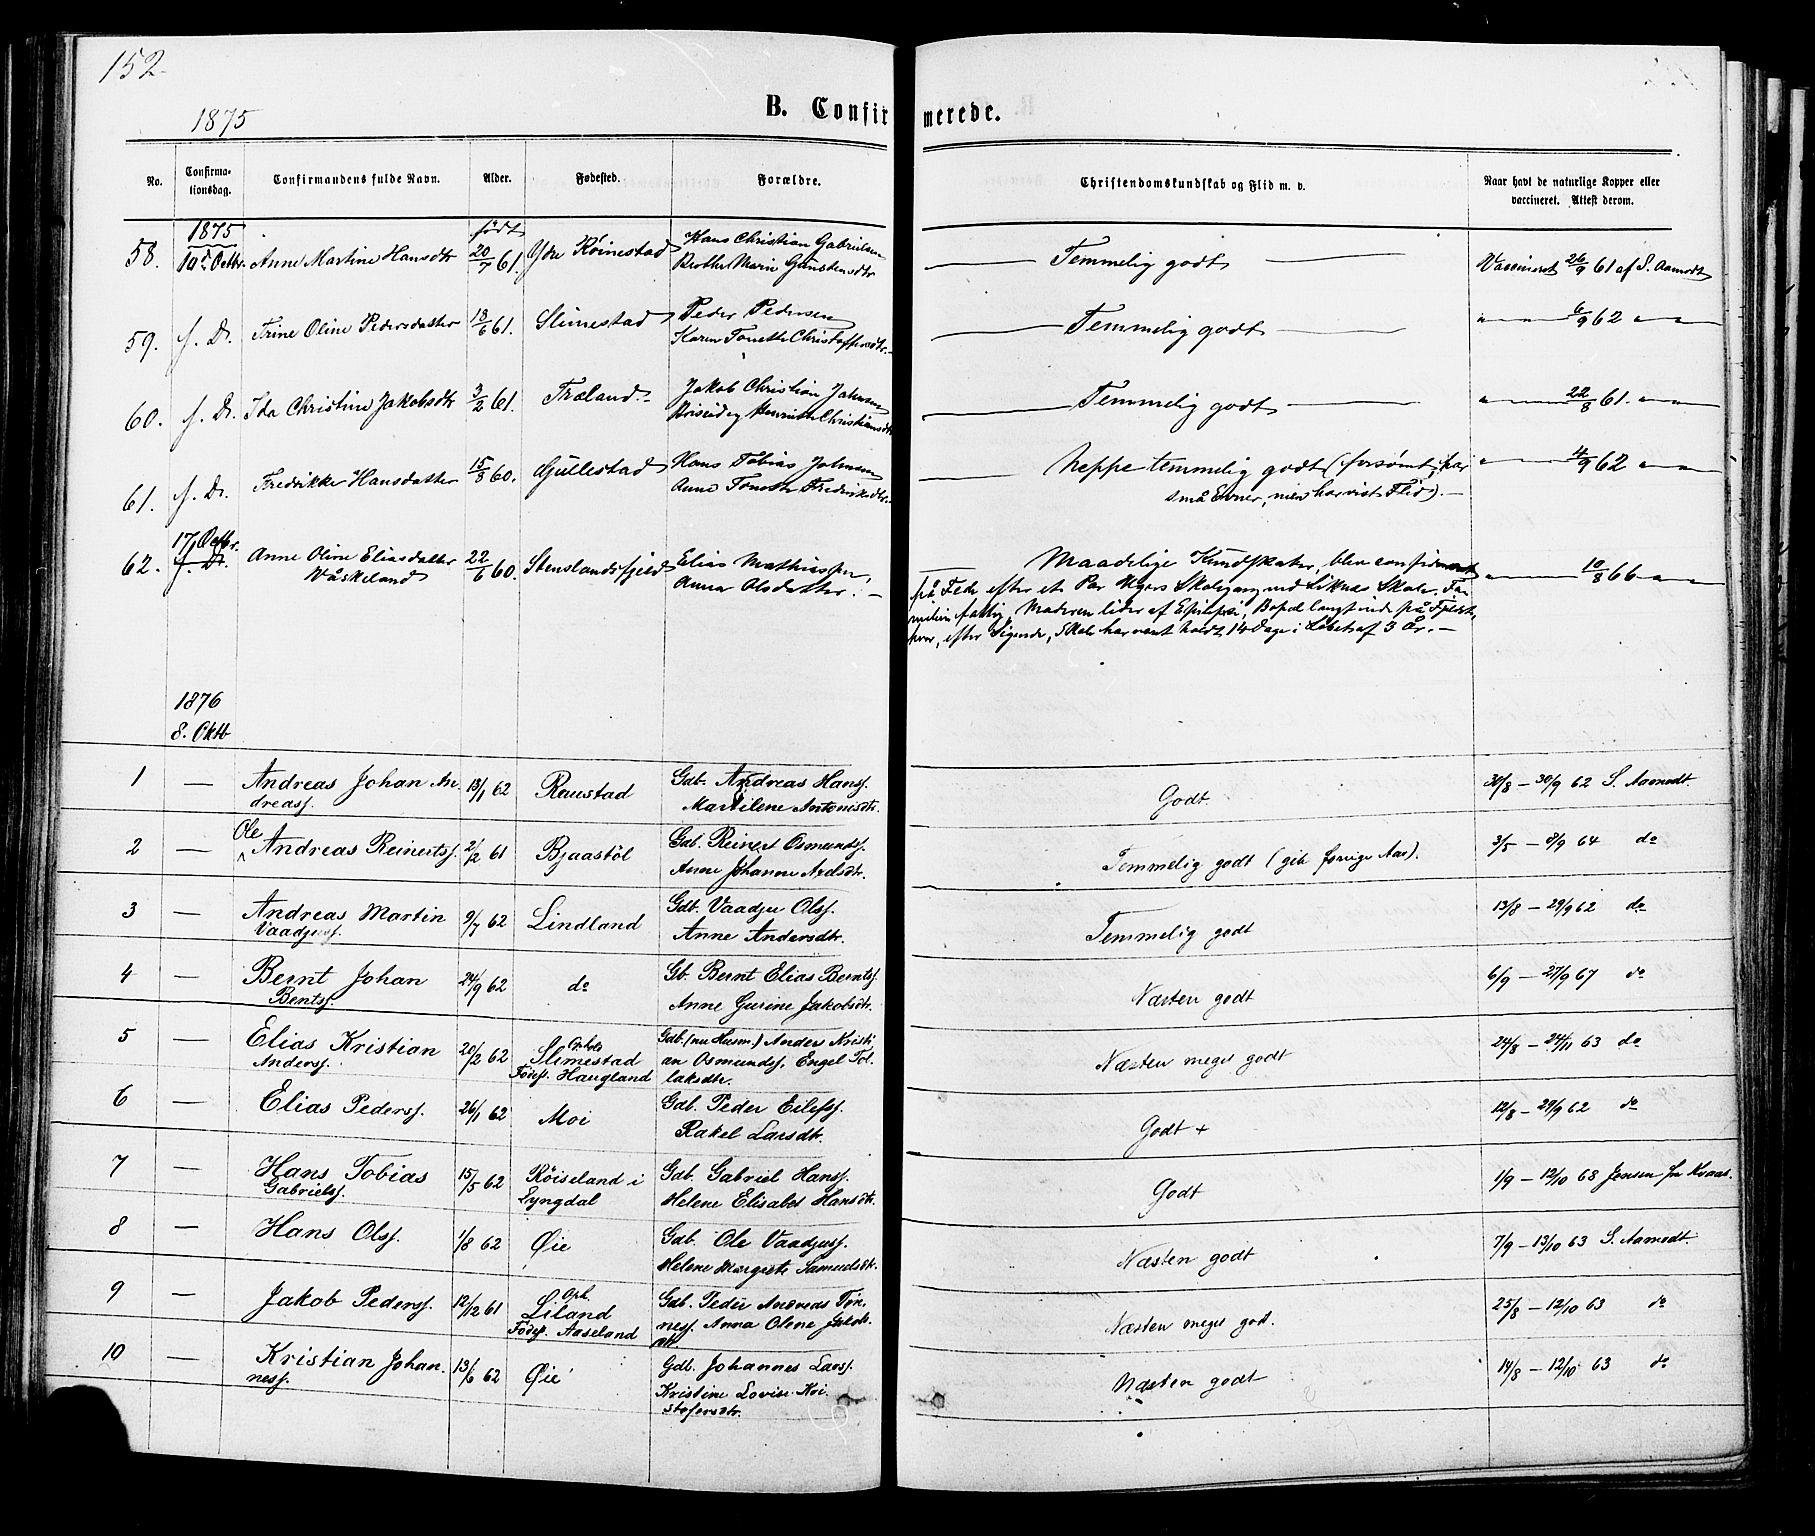 152.
1875
B. Confirmerede.
No.
Confirmationsdag.
Confirmandens fulde Navn.
Alder.
Fødested.
Forældre.
Christendomskundskab og Flid m. v.
Naar havt de naturlige Kopper eller vaccineret. Attest derom.
1875
født
58. 10d Octbr. Anne Martine Hansdtr 20/7 61. Ydre Röinestad Hans Christian Gabrielsen
Berthe Marie Gunstensdtr
Temmelig godt Vaccineret 26/9 61 af S. Aamodt
59. f. D. Trine Oline Pedersdatter 18/6 61. Slimestad Peder Pedersen
Karen Tonette Christoffersdtr.
Temmelig godt " 6/9 62 "
60. f. D. Ida Christine Jakobsdtr 3/2 61. Træland Jakob Christian Johnsen
Henriette Christiansdtr
Temmelig godt " 22/8 61. "
61. f. D. Fredrikke Hansdatter 15/8 60. Gullestad Hans Tobias Johnsen
Anne Tonette Fredriksdtr.
Neppe temmelig godt (forsömt, har " 4/9 62 "
små Evner, men har vist Flid).
62. 17 Octbr. f. D. Anne Oline Eliasdatter 22/6 60. Stenslandsfjeld Elias Mathiassen,
Våskeland Anna Olsdatter.
Maadelige Kundskaber, blev confirmeret " 10/8 66 "
på Fede efter et Par Ugers Skolegang ved Liknes Skole. Fa-
milien fattig, Moderen lider af Epilepsi, Bopæl langt inde på Fjeldet,
hvor, efter Sigende, Skole har været holdt 14 Dage i Løbet af 3 År.
1876
8. Oktb
1 — Andreas Johan An- 13/1 62 Raustad Gdb. Andreas Hanss.
dreass. Martilene Antonisdtr.
Godt 30/8 — 30/9 62 S. Aamodt.
2 — Ole Andreas Reinertss. 2/12 61 Bjaastöl Gdb. Reinert Osmundss.
Anne Johanne Axelsdtr.
Temmelig godt (gik forrige Aar). 3/5 — 8/9 64 do
3 — Andreas Martin 9/7 62 Lindland Gdb. Vaadjer Olss.
Vaadjerss. Anne Andersdtr.
Temmelig godt 13/8 — 29/9 62 do
4 — Bernt Johan 24/9 62 do Gb. Bernt Elias Berntss.
Bentss. Anne Gurine Jakobsdtr.
Næsten godt 6/9 — 27/9 67 do
5 — Elias Kristian 20/2 62 Ophols Slimestad Gdb. (nu Husm.) Anders Kristi-
Anderss. Födest. Haugland an Osmundss. Engel Tol-
laksdtr.
Næsten meget godt 24/8 — 24/11 63 do
6 — Elias Pederss. 26/1 62 Moi Gdb. Peder Eilefss.
Rakel Larsdtr.
Godt + 12/8 — 29/9 62 do
7 — Hans Tobias 15/5 62 Röiseland i Gdb. Gabriel Hanss.
Gabrielss. Lyngdal Helene Elisabet Hansdtr.
Godt 1/9 — 12/10 68 Jensen fr Kvaas.
8 — Hans Olss. 1/8 62 Øie Gdb. Ole Vaadjerss.
Helene Margrete Samuelsdtr.
Næsten godt 7/9 — 13/10 63 S. Aamodt.
9 — Jakob Pederss. 12/12 61 Oph. Liland Gdb. Peder Andreas Tøn-
Födest. Aaseland ness. Anna Olene Jakobs-
dtr.
Næsten meget god. 25/8 — 12/10 63 do
10 — Kristian Johan- 13/6 62 Øie Gdb. Johannes Larss.
ness. Kristine Lovise Kri-
stofersdtr.
Næsten godt 14/8 — 12/10 63 do